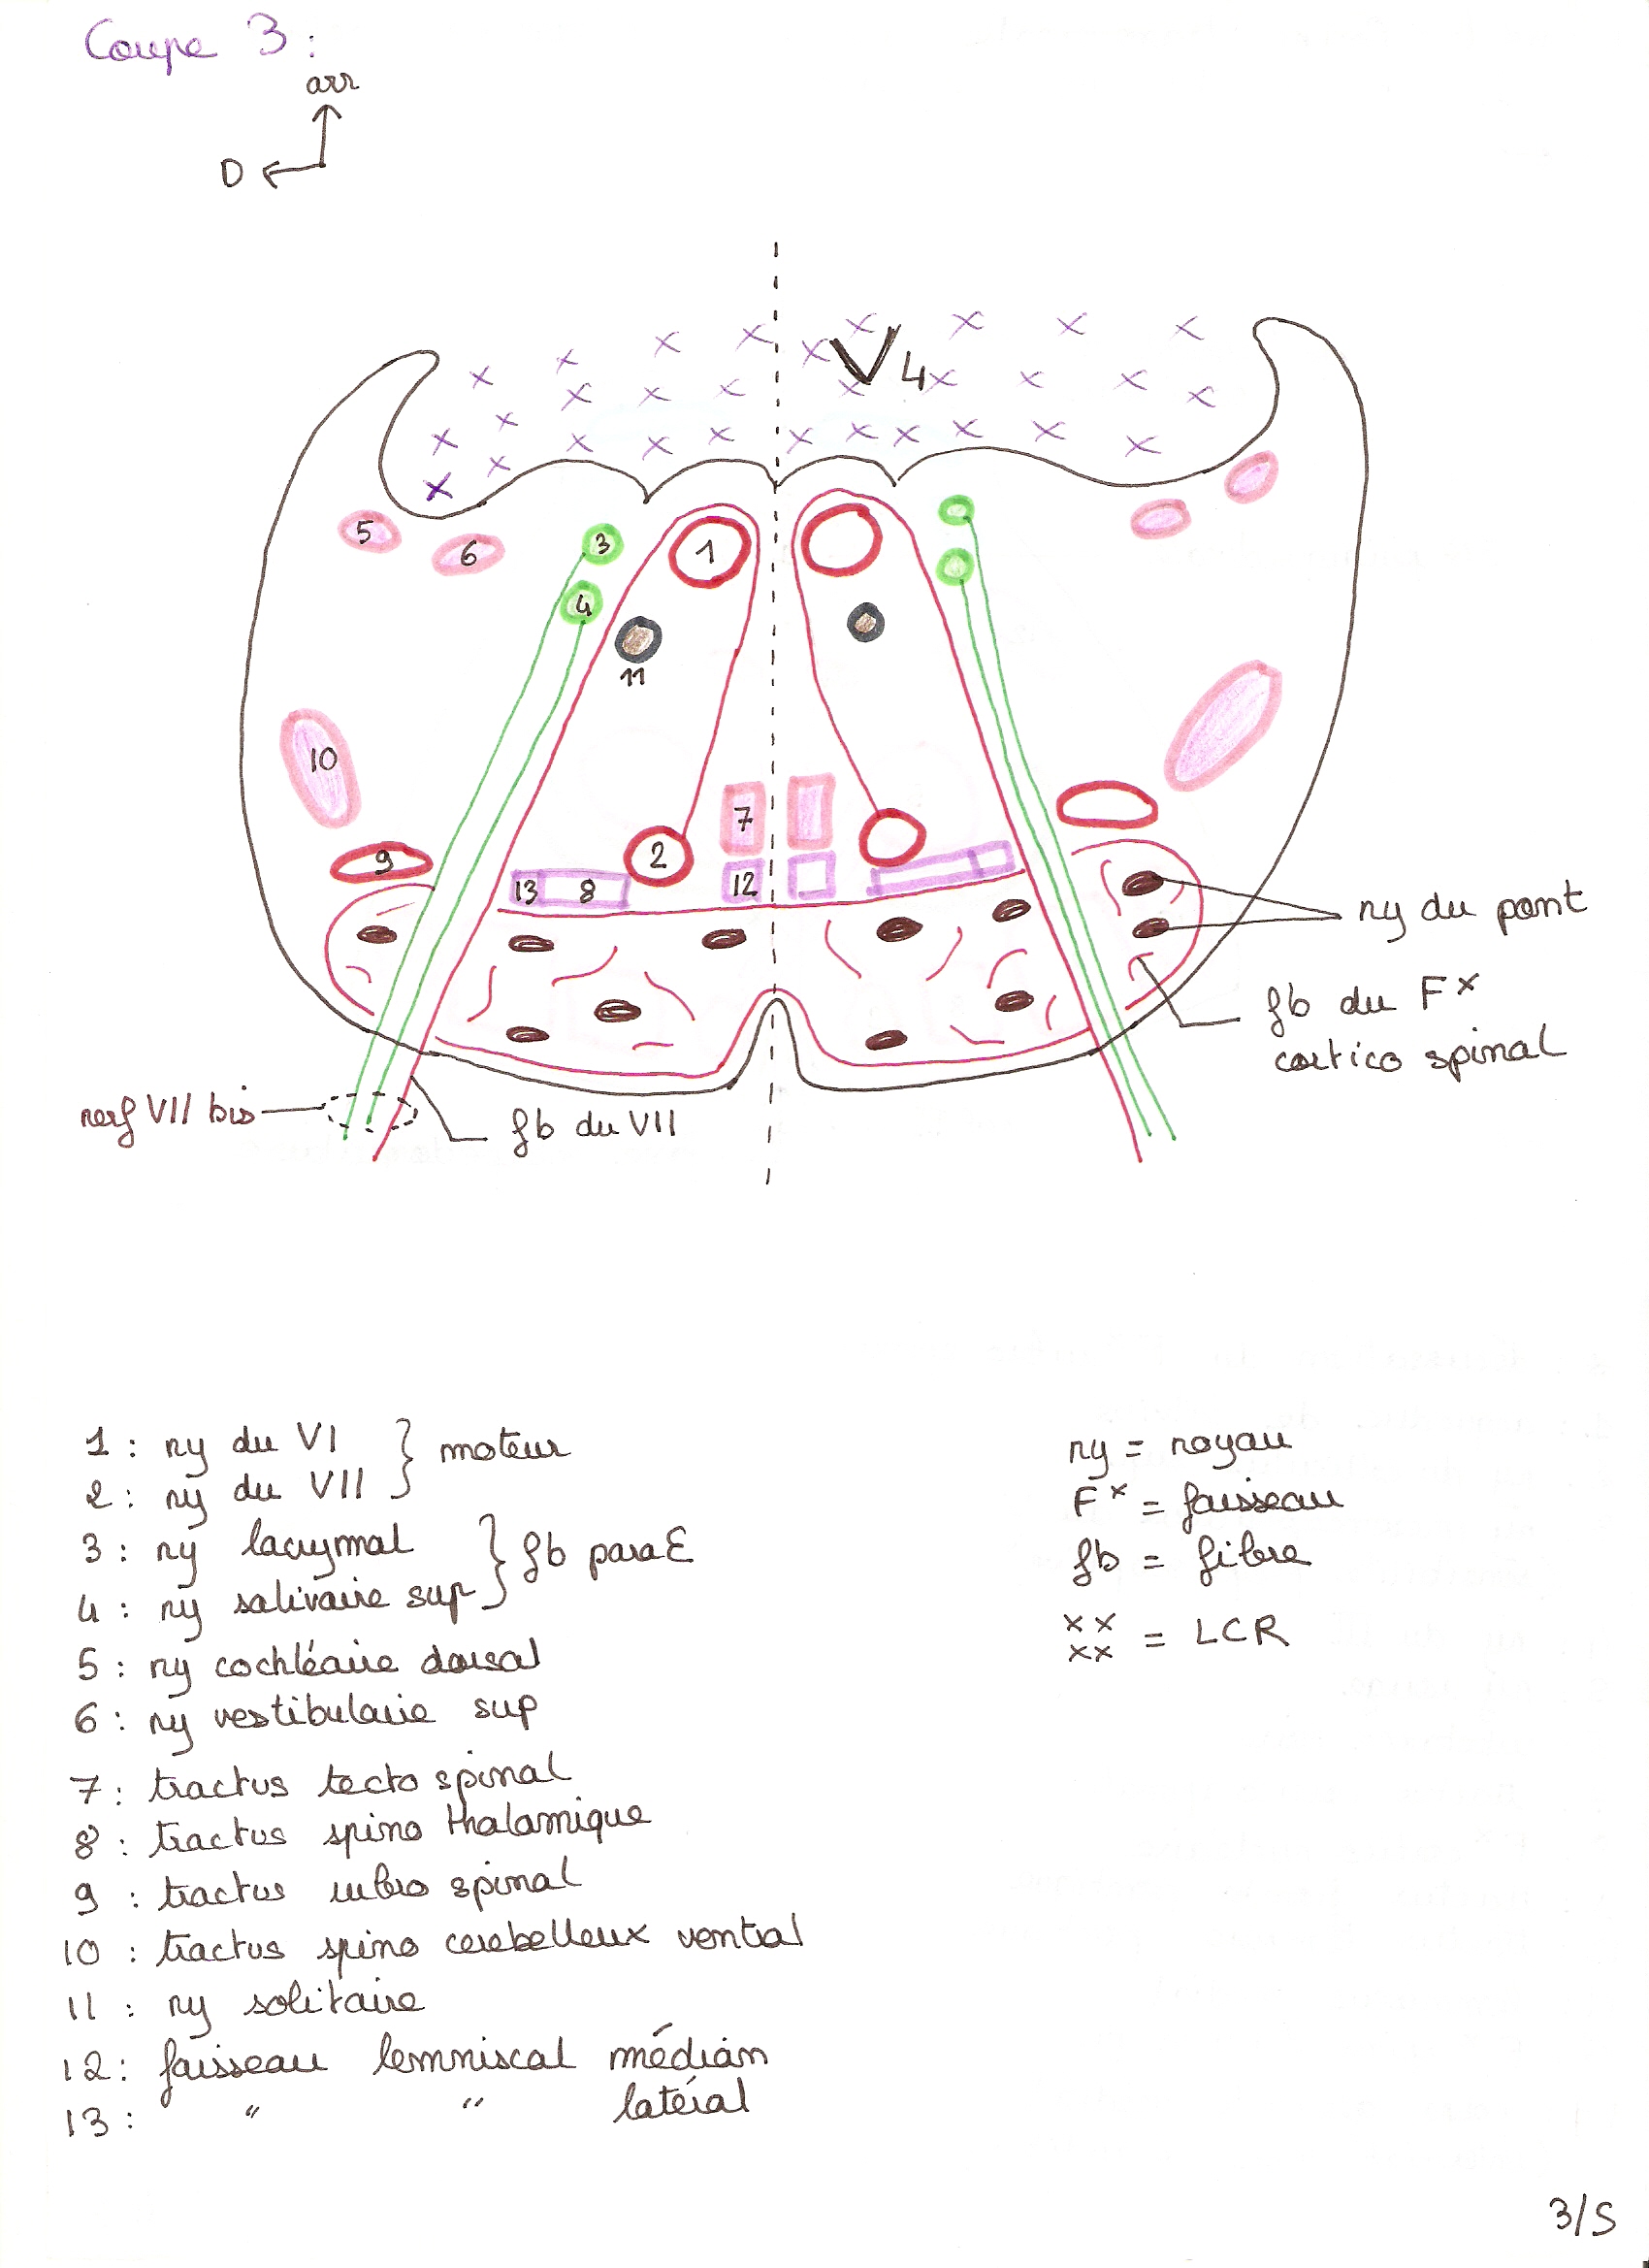 Coupe 3 :
arr
D
V4
5
6
3
1
4
11
10
7
9
2
13
8
12
ny du pont
fb du Fx
cortico spinal
nerf VII bis
fb du VII
1 : ny du VI } moteur
2 : ny du VII
3 : ny lacrymal } fb paraƐ
4 : ny salivaire sup
5 : ny cochléaire dorsal
6 : ny vestibulaire sup
7 : tractus tecto spinal
8 : tractus spino thalamique
9 : tractus rubro spinal
10 : tractus spino cerebelleux ventral
11 : ny solitaire
12 : faisseau lemniscal médian
13 : " " latéral
ny = noyau
Fx = faisseau
fb = fibre
xx
xx = LCR
3/5